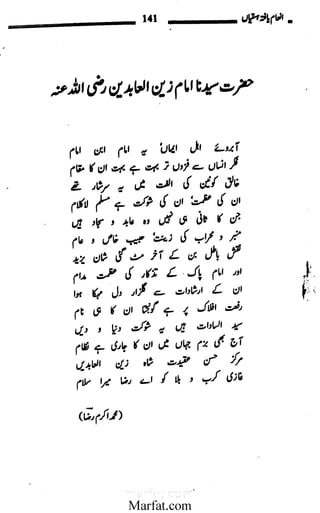 انعام یافتہ ہستیاں
141
حضرت سیدنا امام زین العابدین رضی اللہ عنہ
آبروئے اہل ایماں یہ امام ابن امام
فکر انساں سے فزوں تر ہے بہت ان کا مقام
خالق کونین کی الفت میں یہ سرشار تھے
ان کی عظمت ان کی شوکت ہے مسلم لاکلام
جن کا ثانی ہی نہیں وہ عابد و سجاد ہیں
منبر و محراب کی زینت حبیب خاص و عام
نقش باطل بن کے آخر مٹ گئی شان یزید
اور امام پاک کے تذکار کی عظمت مدام
ان کے ارشادات سے گلزار دل مہکا ہوا
رفعت افلاک پر ہے گونجتا ان کا ہی نام
سید السادات ہیں یہ شوکت دنیا و دیں
آج بھی بزم جہاں میں ان کا جاری ہے نظام
مرکز حسن عقیدت شاہ زین العابدیں
غازی کرب و بلا کو اے رضا میرا سلام
(محمد اکرم رضا)
Marfat.com